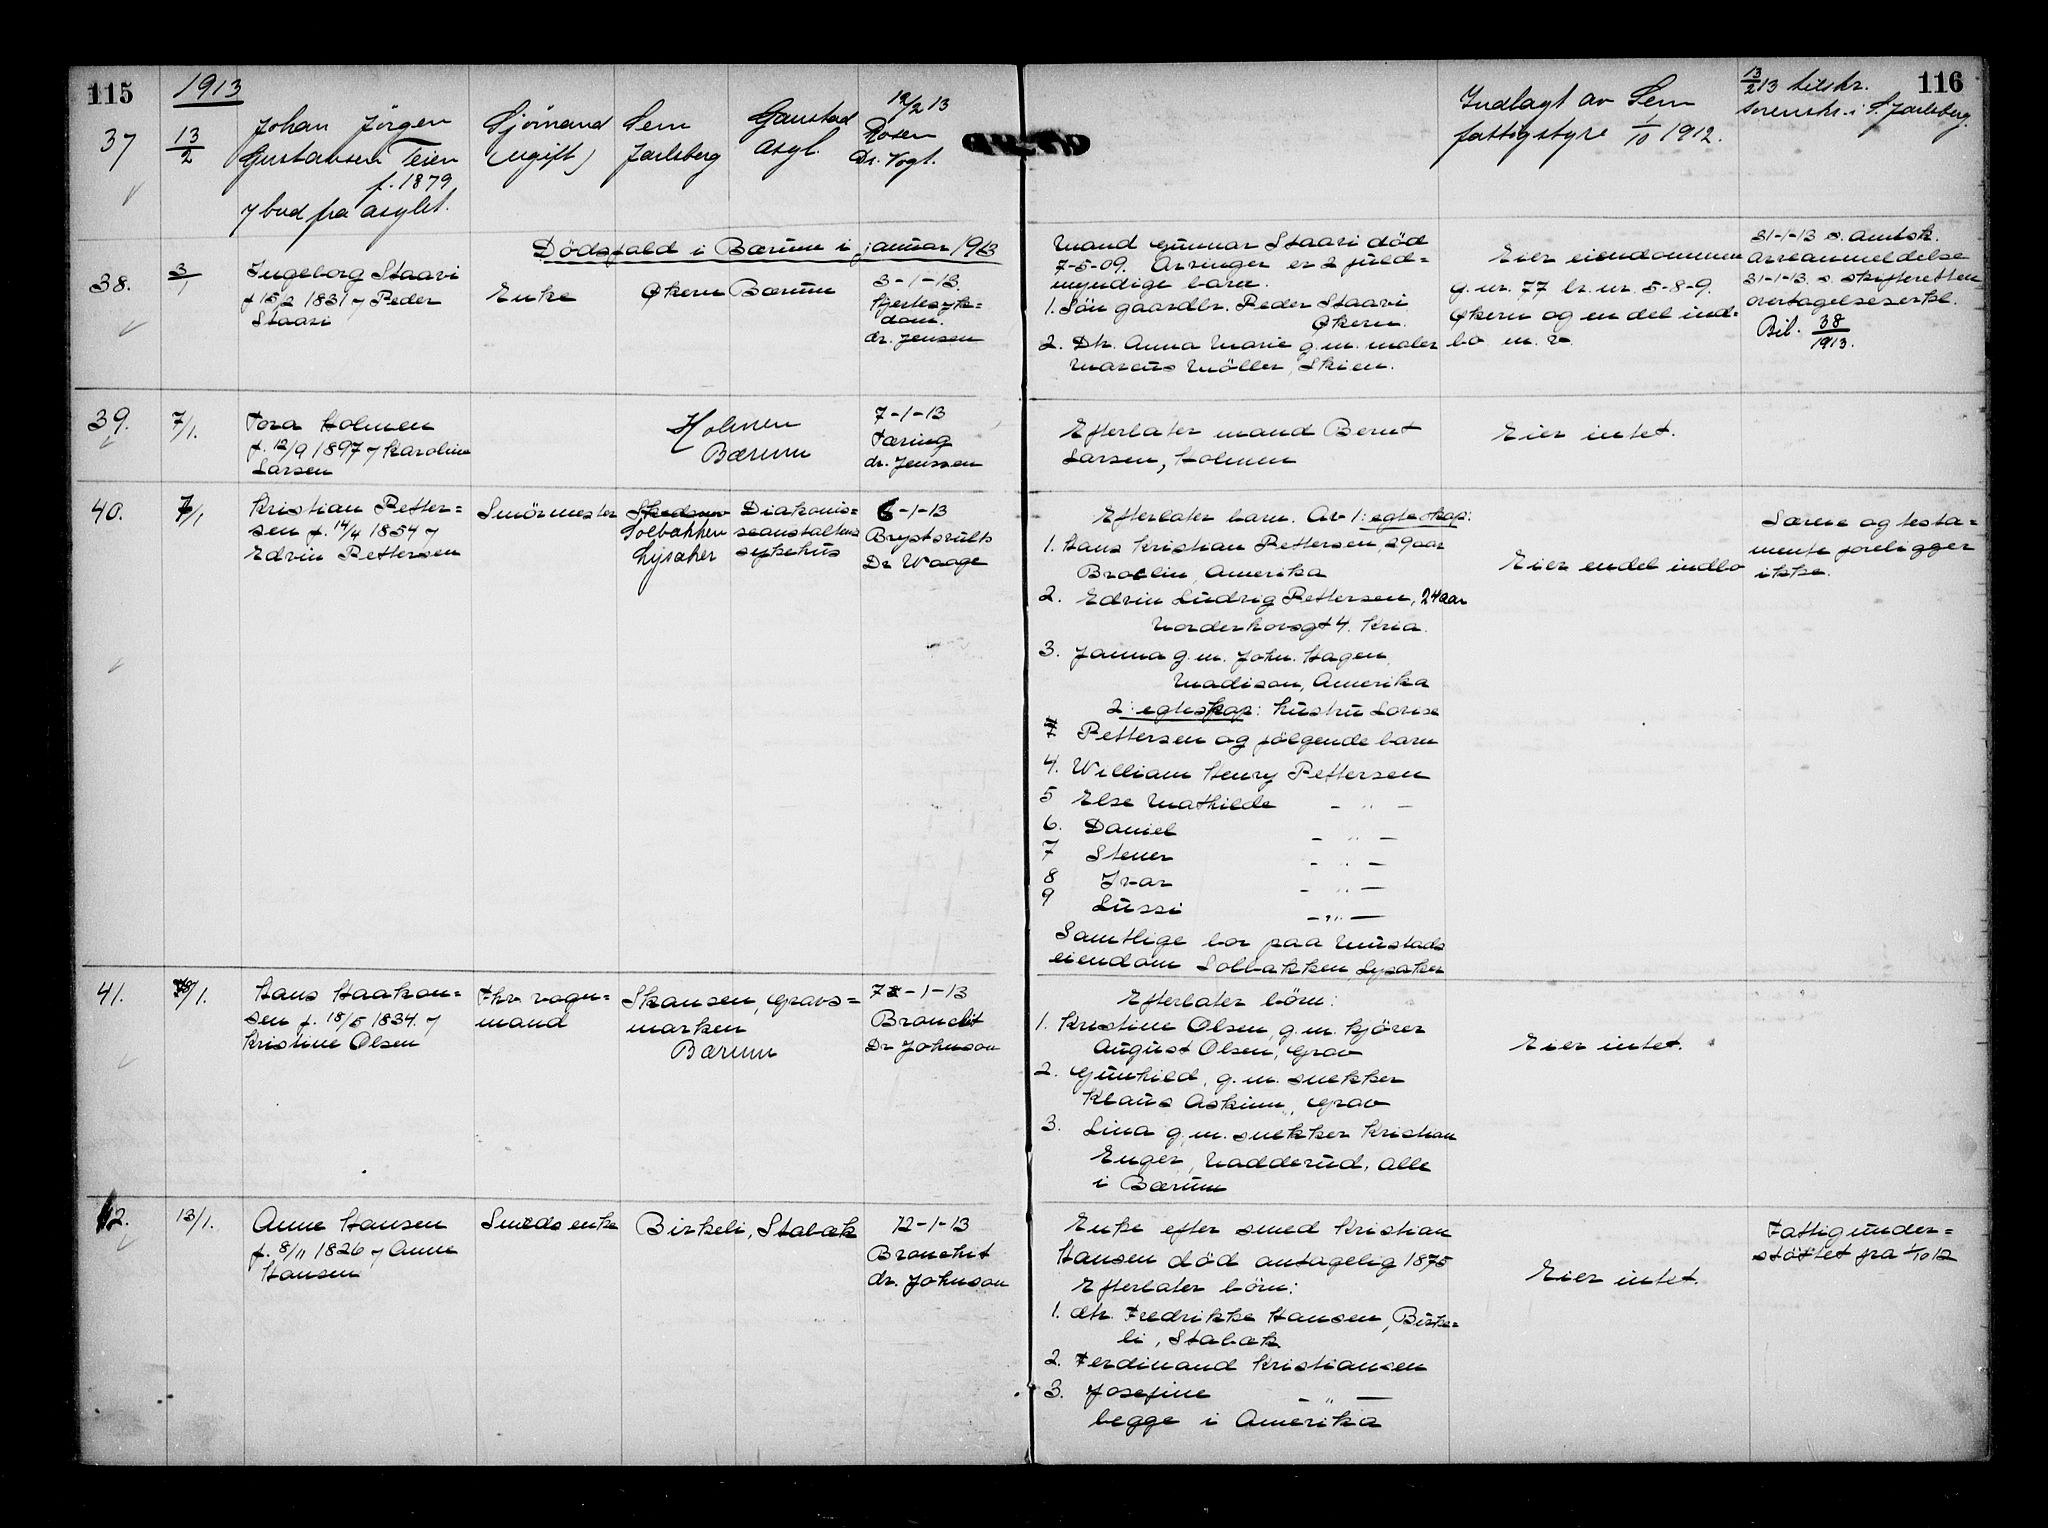 115
1913
116
37
13/2
Johan Jörgen
Gustavsen Teien
f. 1879
y bud fra asylet.
Sjömand
(ugift)
Sem
Jarlsberg
Gaustad
asyl.
12/2 13
Rosen
Dr. Vogt.
Indlagt av Sem
fattigstyre 1/10 1912.
13/2 13 tilskr.
sorenskr. i S. Jarlsberg.
Dödsfald i Bærum i januar 1913
38.
3/1
Ingeborg Staavi
f 15/2 1831 y Peder
Staavi
Enke
Økern Bærum
3-1-13.
Hjertesyk=
dom.
dr. Jensen
Mand Gunnar Staavi död
7-5-09. Arvinger er 2 fuld=
myndige barn.
1. Sön gaardbr. Peder Staavi
Økern.
2. Dtr. Anna Marie g.m. maler
Marcus Möller, Skien.
Eier eiendommen
g. nr. 77 br. nr. 5-8-9.
Økern og en del ind=
bo m. v.
31-1-13 s. amtsk.
arveanmeldelse
31-1-13. s. skifteretten
overtagelseserkl.
Bil. 38/1913.
39.
7/1.
Tora Holmen
f. 12/9 1897 y Karoline
Larsen
Holmen
Bærum
7-1-13
Tæring
dr. Jenssen
Efterlater mand Bernt
Larsen, Holmen
Eier intet.
40.
7/1
Kristian Petter=
sen f. 14/4 1854 y
Edvin Pettersen
Smörmester
Solbakken
Lysaker
Diakonis=
seanstaltens
sykehus
6-1-13
Brystsvulst
Dr Waage
Efterlater barn. Av 1: egteskap:
1. Hans Kristian Pettersen, 29 aar
Broclin, Amerika
2. Edvin Ludvig Pettersen, 24 aar
Norderhovsgt 4. Kria.
3. Janna g.m. John. Hagen,
Madison, Amerika
2: egteskap: hustru Lovise
Pettersen og fölgende barn
4. William Henry Pettersen
5 Else Mathilde - " -
6. Daniel - " -
7 Stener - " -
8 Ivar - " -
9 Lussi - " -
Samtlige bor paa Mustads
eiendom Solbakken Lysaker
Eier endel indbo
Særeie og testa=
mente foreligger
ikke.
41.
/1.
Hans Haakon=
sen f. 18/5 1834. y
Kristine Olsen
Fhv. vogn=
mand
Skansen, Gravs=
marken
Bærum
-1-13
Bronchit
Dr Johnson
Efterlater börn:
1. Kristine Olsen, g.m. kjörer
August Olsen, Grav
2. Gunhild, g.m. snekker
Klaus Askim, Grav
3. Lina g.m. snekker Kristian
Enger, Nadderud, alle
i Bærum
Eier intet.
42.
13/1.
Anne Hansen
f. 8/11 1826 y Anne
Hansen
Smeds enke
Birkeli, Stabæk
12-1-13
Bronchit
dr. Johnson
Enke efter smed Kristian
Hansen död antagelig 1875
Efterlater börn:
1. dtr. Fredrikke Hansen, Birke=
li, Stabæk
2. Ferdinand Kristiansen
3. Josefine - " -
begge i Amerika
Eier intet.
Fattigunder=
stöttet fra 1/10 12